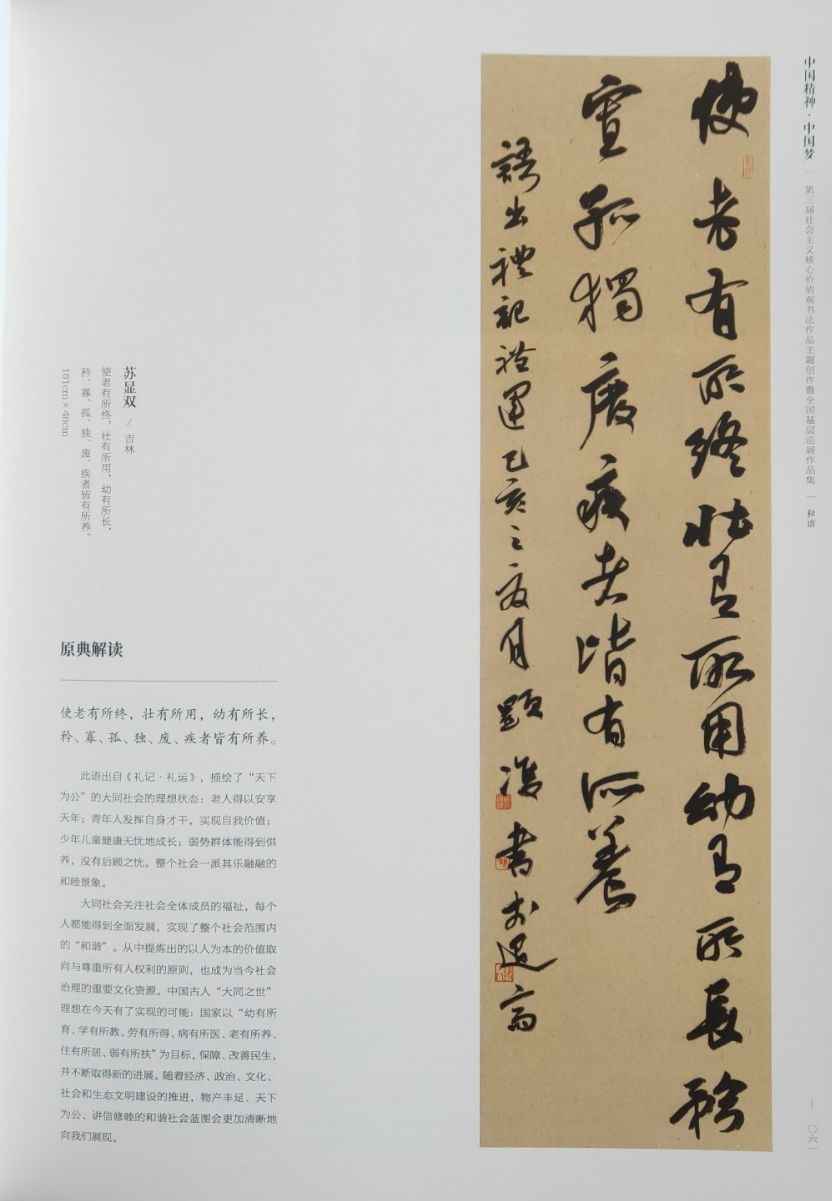 中国精神·中国梦 | 第三届社会主义核心价值观书法作品主题创作暨全国基层巡展作品集 | 和谐
使老有所终壮有所用幼有所长矜
寡孤独废疾者皆有所养
语出礼记礼运己亥之夏月显双书于迟斋
苏显双 / 吉林
使老有所终，壮有所用，幼有所长，
矜、寡、孤、独、废、疾者皆有所养。
181cm×48cm
原典解读
使老有所终，壮有所用，幼有所长，
矜、寡、孤、独、废、疾者皆有所养。
此语出自《礼记·礼运》，描绘了“天下
为公”的大同社会的理想状态：老人得以安享
天年；青年人发挥自身才干，实现自我价值；
少年儿童健康无忧地成长；弱势群体能得到供
养，没有后顾之忧。整个社会一派其乐融融的
和睦景象。
大同社会关注社会全体成员的福祉，每个
人都能得到全面发展，实现了整个社会范围内
的“和谐”。从中提炼出的以人为本的价值取
向与尊重所有人权利的原则，也成为当今社会
治理的重要文化资源。中国古人“大同之世”
理想在今天有了实现的可能：国家以“幼有所
育、学有所教、劳有所得、病有所医、老有所养、
住有所居、弱有所扶”为目标，保障、改善民生，
并不断取得新的进展。随着经济、政治、文化、
社会和生态文明建设的推进，物产丰足、天下
为公、讲信修睦的和谐社会蓝图会更加清晰地
向我们展现。
— 〇六一